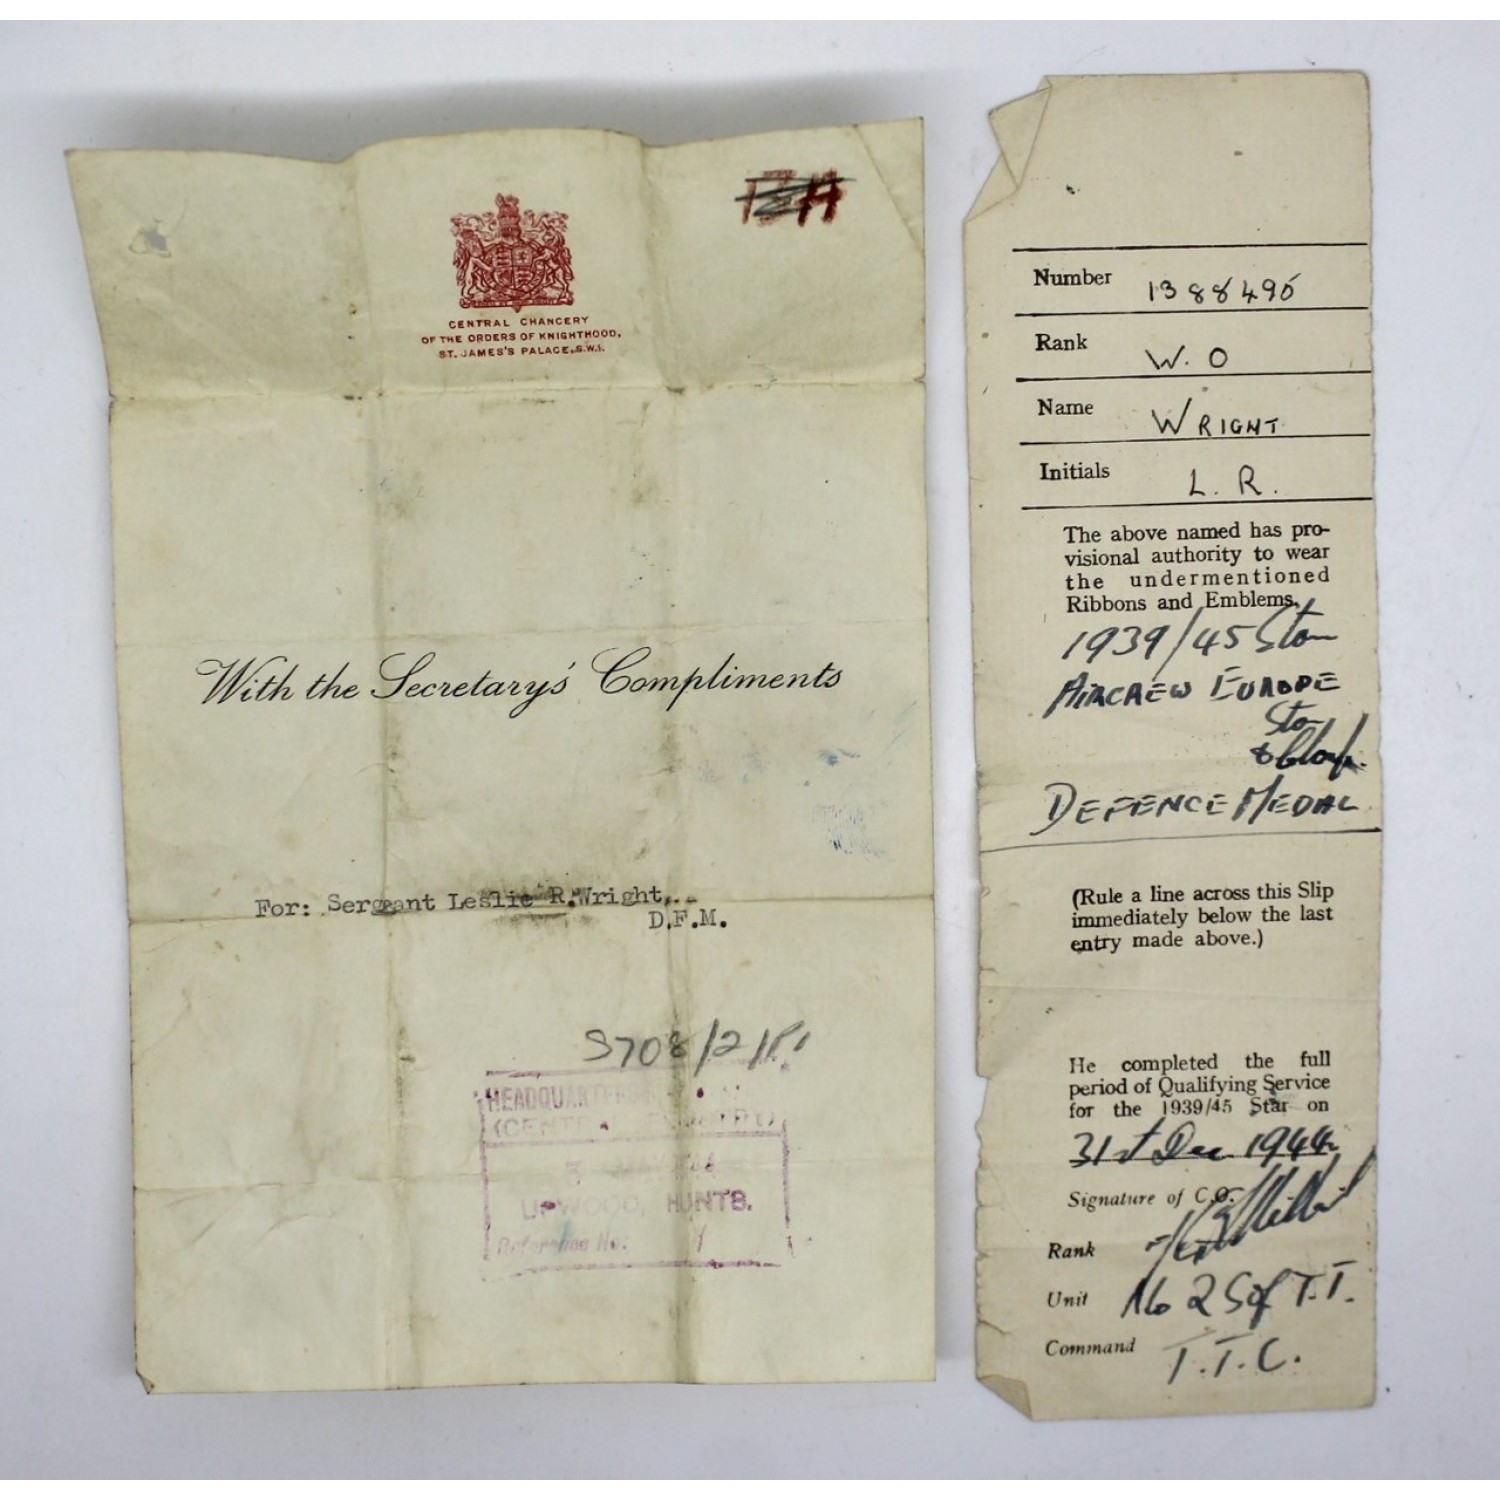 CENTRAL CHANCERY
OF THE ORDERS OF KNIGHTHOOD,
ST. JAMES'S PALACE, S.W.1.
With the Secretary's Compliments
For: Sergeant Leslie R. Wright,
D.F.M.
S708/2/P1
HEADQUARTERS
UPWOOD, HUNTS.
Reference No:
Number 1388495
Rank W. O
Name WRIGHT
Initials L. R.
The above named has pro-
visional authority to wear
the undermentioned
Ribbons and Emblems.
1939/45 Star
AIRCREW EUROPE
Star
& Clasp.
DEFENCE MEDAL
(Rule a line across this Slip
immediately below the last
entry made above.)
He completed the full
period of Qualifying Service
for the 1939/45 Star on
31st Dec 1944
Signature of C.O.
Rank
Unit No 2 S of T.T.
Command T.T.C.